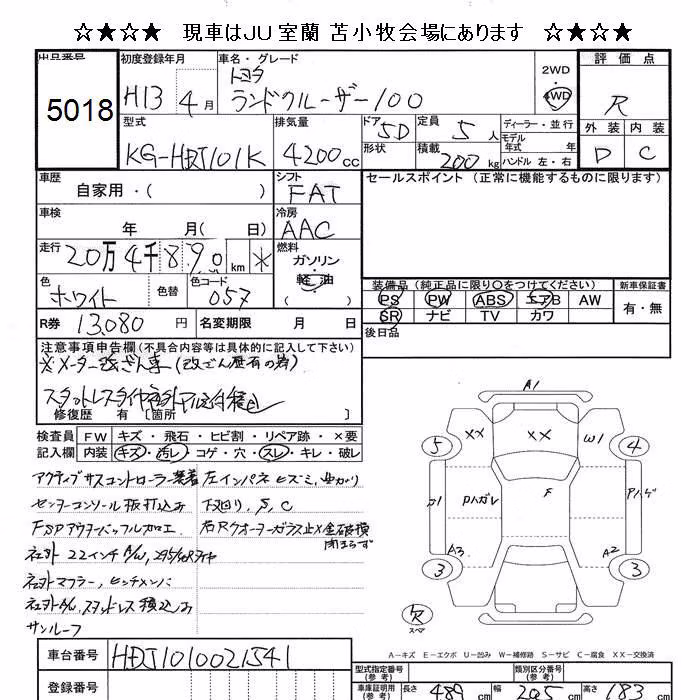 ☆★☆★ 現車はJU室蘭 苫小牧会場にあります ☆★☆★
出品番号
5018
初度登録年月
H13 4月
車名・グレード
トヨタ
ランドクルーザー100
2WD
4WD
評価点
R
外装 内装
D C
型式
KG-HDJ101K
排気量
4200cc
ドア 5D
形状
定員 5人
積載 200kg
ディーラー・並行
モデル年式 年式
ハンドル 左・右
車歴
自家用・( )
シフト
FAT
車検
年 月( 日)
冷房
AAC
走行
20万4千890km *
燃料
ガソリン
軽油
( )
セールスポイント (正常に機能するものに限ります)
色
ホワイト
色替
色コード
057
装備品 (純正品に限り○をつけてください)
PS PW ABS エアB AW
SR ナビ TV カワ
新車保証書
有・無
R券 13,080円
名変期限 月 日
後日品
注意事項申告欄 (不具合内容等は具体的に記入して下さい)
※メーター改ざん車(改ざん歴有の為)
修復歴 有 〔箇所 〕
検査員記入欄
FW キズ・飛石・ヒビ割・リペア跡・×要
内装 キズ・汚レ・コゲ・穴・スレ・キレ・破レ
アクティブサスコントローラー装着
センターコンソール板打込み
FSPアウターバッフル加工
社外22インチA/W,
社外マフラー,
サンルーフ
左インパネヒズミ,
下回り, S, C
右Rクオーターガラス
閉まらず
A1
5 ×× ×× W1 4
Pハガレ F Pハゲ
A3 A2
3 3
欠
スペア
A−キズ E−エクボ U−凹み W−補修跡 S−サビ C−腐食 XX−交換済
車台番号 HDJ1010021541
登録番号
型式指定番号
(参考)
類別区分番号
(参考)
車庫証明用
(参考)
長さ 489cm 幅 205cm 高さ 183cm